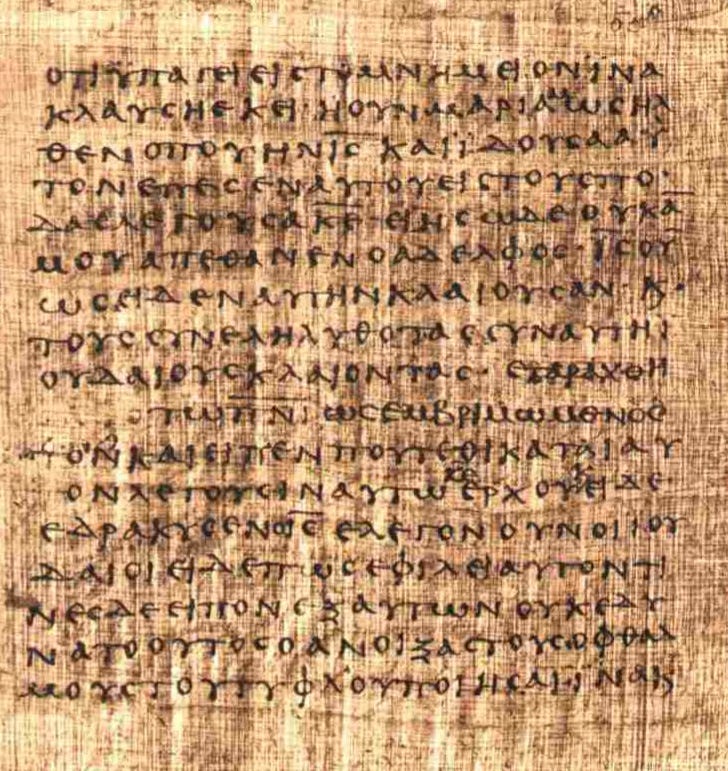 ΟΤΙΫΠΑΓΕΙΕΙϹΤΟΜΝΗΜΕΙΟΝΪΝΑ
ΚΛΑΥϹΗΕΚΕΙ·ΗΟΥΝΜΑΡΙΑΜΩϹΗΛ
ΘΕΝΟΠΟΥΗΝΙ̅Ϲ̅ΚΑΙΪΔΟΥϹΑΑΥ
ΤΟΝΕΠΕϹΕΝΑΥΤΟΥΕΙϹΤΟΥϹΠΟ·
ΔΑϹΛΕΓΟΥϹΑΚ̅Ε̅·ΕΙΗϹΩΔΕΟΥΚΑ̅
ΜΟΥΑΠΕΘΑΝΕΝΟΑΔΕΛΦΟϹ·Ι̅Ϲ̅ΟΥ̅
ΩϹΕΙΔΕΝΑΥΤΗΝΚΛΑΙΟΥϹΑΝ·Κ·
ΤΟΥϹϹΥΝΕΛΗΛΥΘΟΤΑϹϹΥΝΑΥΤΗΙ
ΟΥΔΑΙΟΥϹΚΛΑΙΟΝΤΑϹ·ΕΤΑΡΑΧΘΗ
ΤΩΠ̅Ν̅Ι̅ΩϹΕΜΒΡΙΜΩΜΕΝΟϹ
ΤΟΝΚΑΙΕΙΠΕΝΠΟΥΤΕΘΙΚΑΤΑΙΑΥ
ΟΝΛΕΓΟΥϹΙΝΑΥΤΩΚ̅Ε̅ΕΡΧΟΥΚΕΙΔΕ
ΕΔΡΑΚΥϹΕΝΟΙ̅Ϲ̅ΕΛΕΓΟΝΟΥΝΟΙΙΟΥ
ΔΑΙΟΙΕΙΔΕΠΩϹΕΦΙΛΕΙΑΥΤΟΝΤΙ
ΝΕϹΔΕΕΙΠΟΝΕΞΑΥΤΩΝΟΥΚΕΔΥ
ΝΑΤΟΟΥΤΟϹΟΑΝΟΙΞΑϹΤΟΥϹΟΦΘΑΛ
ΜΟΥϹΤΟΥΤΥΦΛΟΥΠΟΙΗϹΑΙΪΝΑΚ